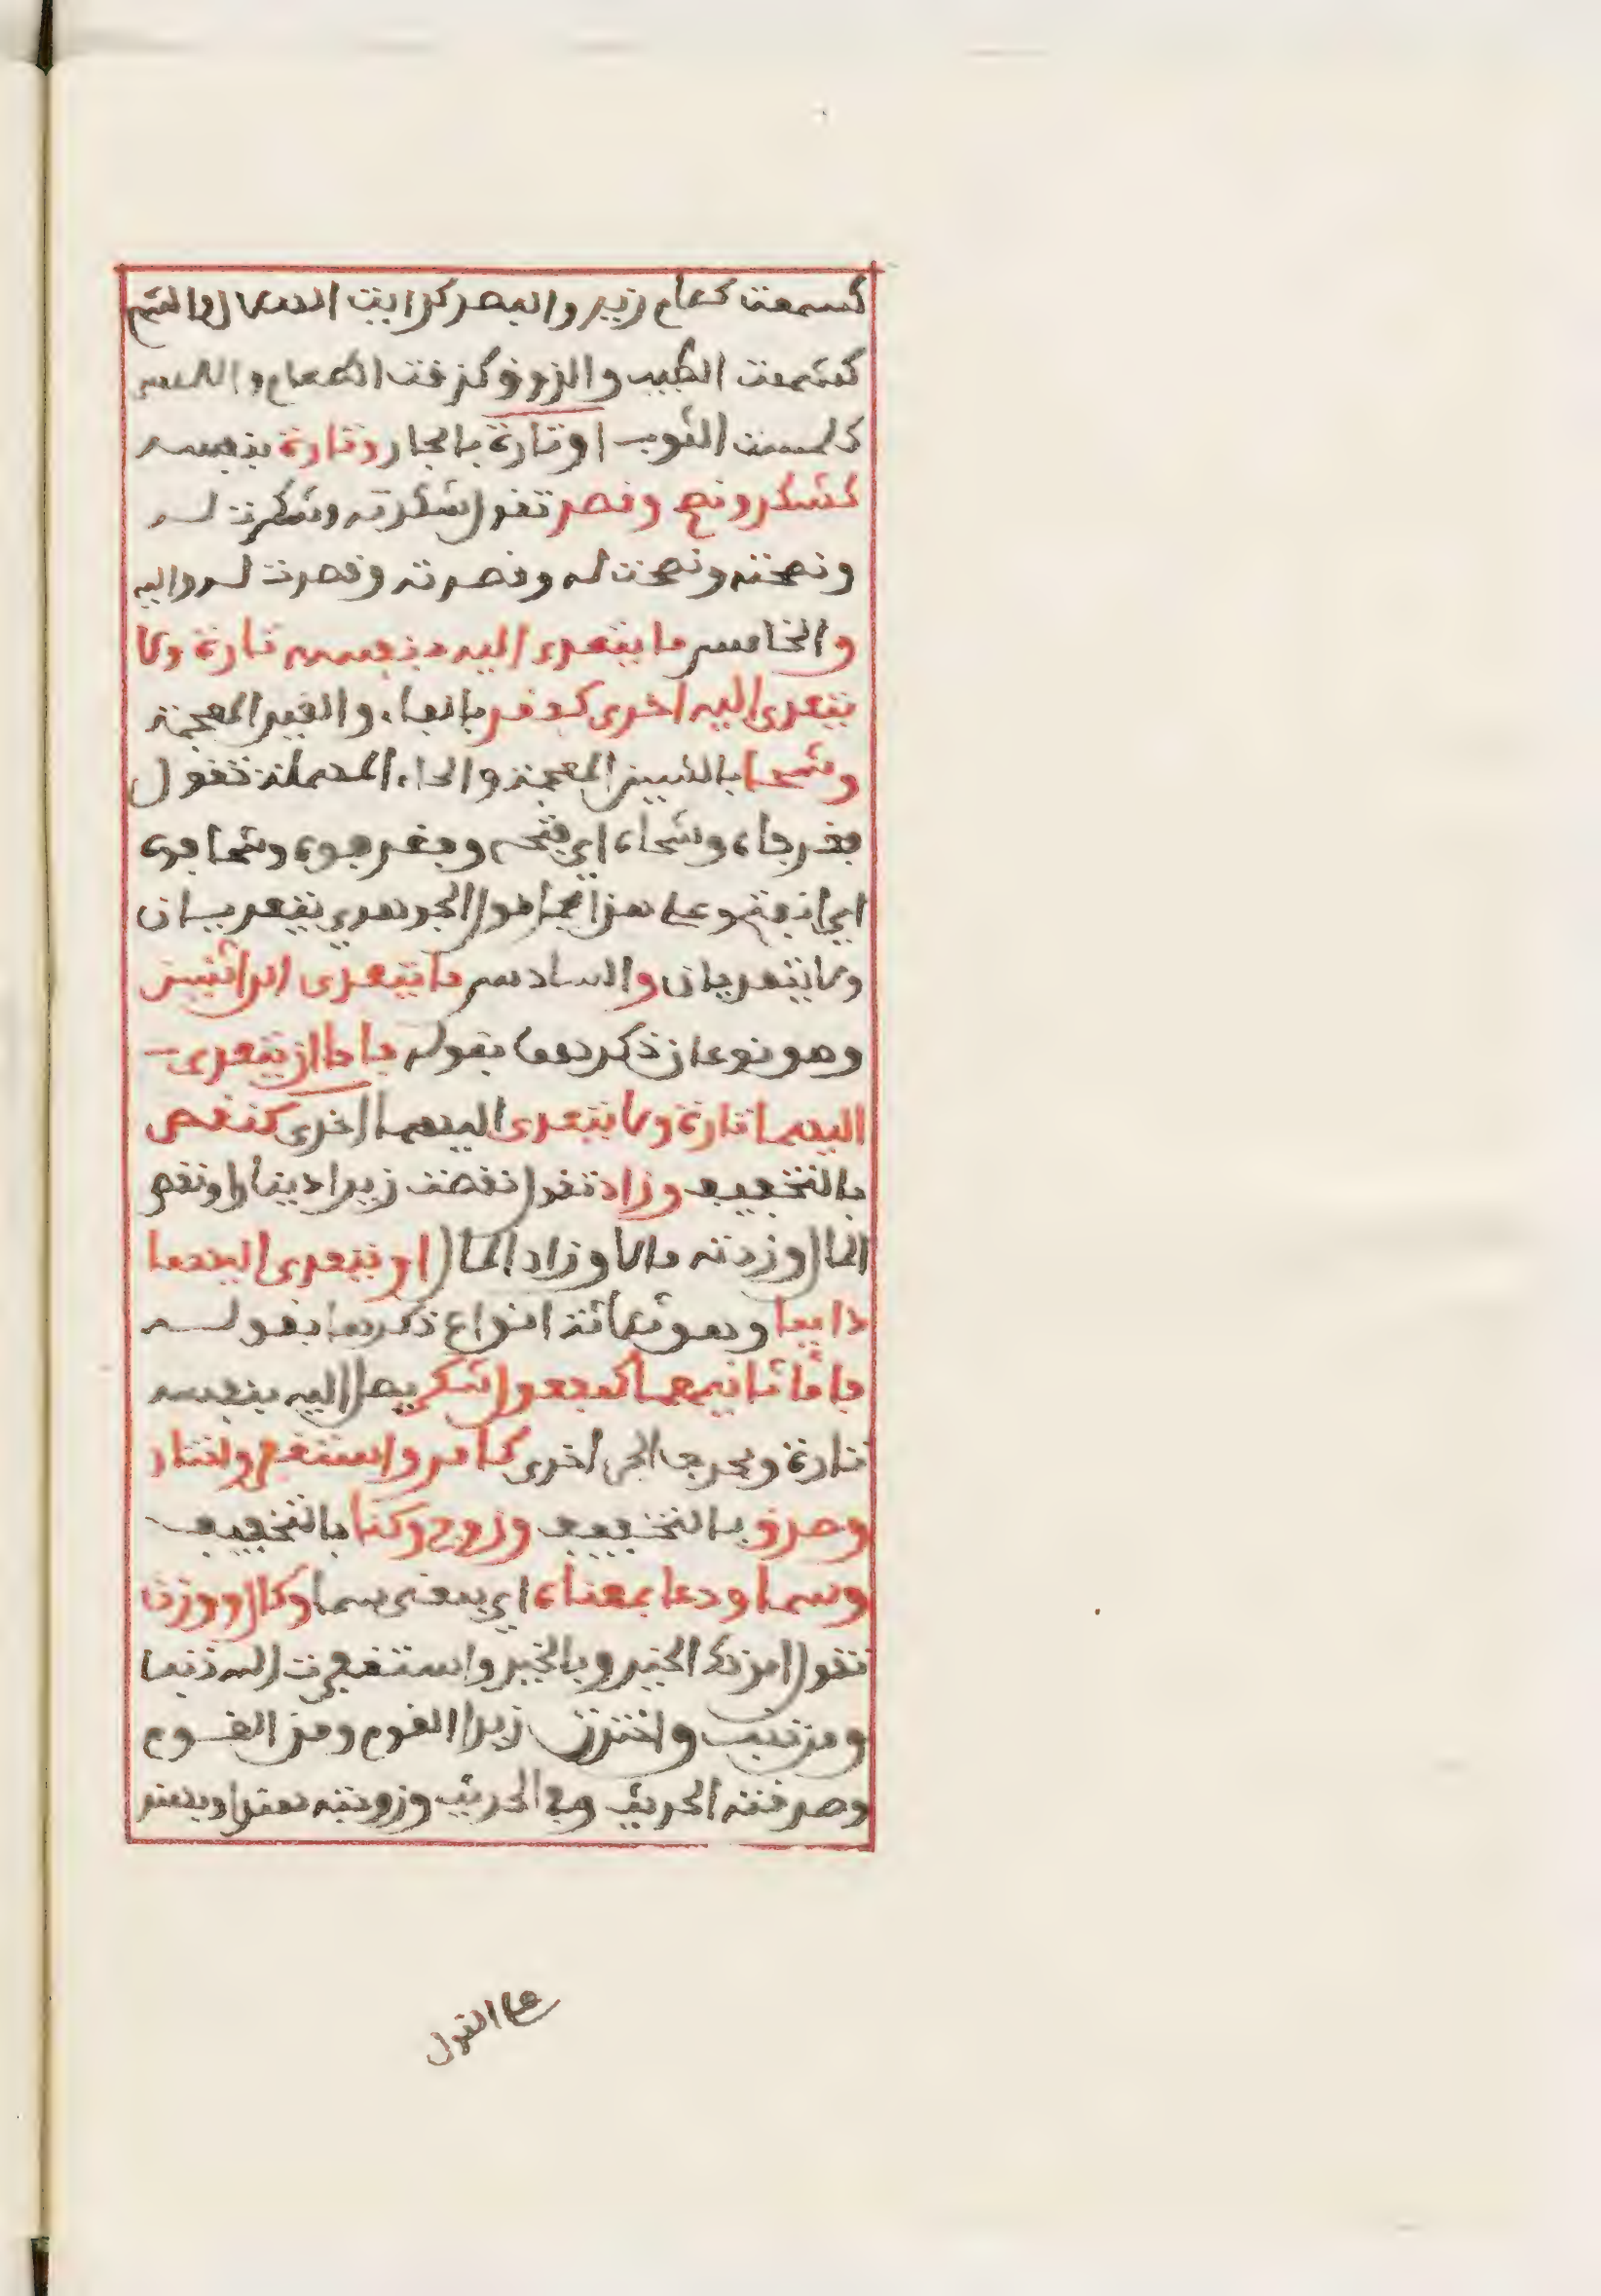 كسمعت كلام زيد والبصر كرايت الهلال والشم
كشممت الطيب والذوق كذقت الطعام واللمس
كلمست الثوب او تارة بالجار وتارة بنفسه
كشكر ونصح وقصد تقول شكرته وشكرت له
ونصحته ونصحت له وقصدته وقصدت له واليه
والخامس ما يتعدى اليه بنفسه تارة ولا
يتعدى اليه اخرى كفغر بالفاء والغين المعجمة
وشحا بالشين المعجمة والحاء المهملة تقول
فغر فاه وشحاه اي فتحه وفغر فوه وشحا فوه
اي انفتح وعلى هذا فما قول الجوهري يتعديان
ولا يتعديان والسادس ما يتعدى الى اثنين
وهو نوعان ذكرهما بقوله فاما ان يتعدى
اليهما تارة ولا يتعدى اليهما اخرى كنقص
بالتخفيف وزاد تقول نقصت زيدا دينارا ونقص
المال وزدته مالا وزاد المال او يتعدى اليهما
دايما وهو ثلاثة انواع ذكرها بقوله
فاما ثانيهما كمفعول شكر يصل اليه بنفسه
تارة وبحرف الجر اخرى كامر واستغفر واختار
وصدق بالتخفيف وزوج وكنا بالتخفيف
وسما ودعا بمعناه اي بمعنى سما وكال ووزن
تقول امرتك الخير وبالخير واستغفرت الله ذنبا
ومن ذنب واخترت زيدا القوم ومن القوم
وصدقته الحديث وفي الحديث وزوجته هندا وبهند
على القول